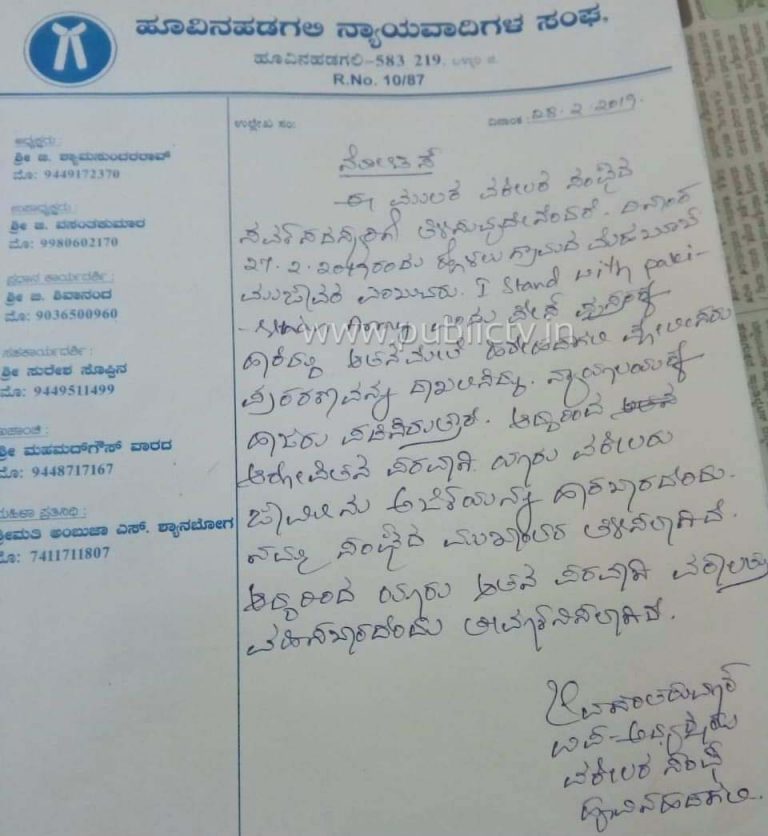 ಹೂವಿನಹಡಗಲಿ ನ್ಯಾಯವಾದಿಗಳ ಸಂಘ,
ಹೂವಿನಹಡಗಲಿ-583 219.
R.No. 10/87
ಉಲ್ಲೇಖ ಸಂ:
ದಿನಾಂಕ : 28.2.2019.
ಅಧ್ಯಕ್ಷರು :
ಶ್ರೀ ಜಿ. ಶ್ಯಾಮಸುಂದರರಾವ್
ಮೊ: 9449172370
ಉಪಾಧ್ಯಕ್ಷರು :
ಶ್ರೀ ಜಿ. ವಸಂತಕುಮಾರ
ಮೊ: 9980602170
ಪ್ರಧಾನ ಕಾರ್ಯದರ್ಶಿ :
ಶ್ರೀ ಬಿ. ಶಿವಾನಂದ
ಮೊ: 9036500960
ಸಹಕಾರ್ಯದರ್ಶಿ :
ಶ್ರೀ ಸುರೇಶ ಸೊಪ್ಪಿನ
ಮೊ: 9449511499
ಖಜಾಂಚಿ :
ಶ್ರೀ ಮಹಮದ್‌ಗೌಸ್ ವಾರದ
ಮೊ: 9448717167
ಮಹಿಳಾ ಪ್ರತಿನಿಧಿ :
ಶ್ರೀಮತಿ ಅಂಬುಜಾ ಎಸ್. ಶ್ಯಾನಭೋಗ
ಮೊ: 7411711807
ನೋಟಿಸ್
ಈ ಮೂಲಕ ವಕೀಲರ ಸಂಘದ
ಸರ್ವಸದಸ್ಯರಿಗೆ ತಿಳಿಸುವುದೇನೆಂದರೆ. ದಿನಾಂಕ
27.2.2019ರಂದು ಹೊಳಲು ಗ್ರಾಮದ ಮೆಹಬೂಬ್
ಮುಜಾವರ ಎಂಬುವರು. I Stand with paki-
-stan Army ಎಂದು
www.publictv.in
ಹಾಕಿದ್ದು ಆತನ ಮೇಲೆ ಹಿರೇಹಡಗಲಿ ಪೋಲೀಸರು
ಪ್ರಕರಣವನ್ನು ದಾಖಲಿಸಿದ್ದು. ನ್ಯಾಯಾಲಯಕ್ಕೆ
ಹಾಜರು ಪಡಿಸಿರುತ್ತಾರೆ. ಆದ್ದರಿಂದ
ಆರೋಪಿತನ ಪರವಾಗಿ ಯಾರು ವಕೀಲರು
ಜಾಮೀನು ಅರ್ಜಿಯನ್ನು ಹಾಕಬಾರದೆಂದು.
ನಮ್ಮ ಸಂಘದ ಮುಖಾಂತರ ತಿಳಿಸಲಾಗಿದೆ.
ಆದ್ದರಿಂದ ಯಾರು ಆತನ ಪರವಾಗಿ ವಕಾಲತ್ತು
ವಹಿಸಬಾರದೆಂದು ತೀರ್ಮಾನಿಸಲಾಗಿದೆ.
ವಸಂತಕುಮಾರ
ಉಪ-ಅಧ್ಯಕ್ಷರು
ವಕೀಲರ ಸಂಘ
ಹೂವಿನಹಡಗಲಿ.